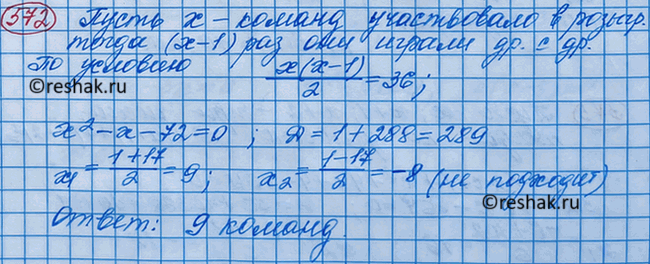 572 Пусть x - команд участвовало в розыгр.
тогда (x-1) раз они играли др. с др.
По условию x(x-1)/2 = 36;
©reshak.ru
x² - x - 72 = 0 ; D = 1 + 288 = 289
x₁ = (1+17)/2 = 9; x₂ = (1-17)/2 = -8 (не подходит)
©reshak.ru
Ответ: 9 команд.